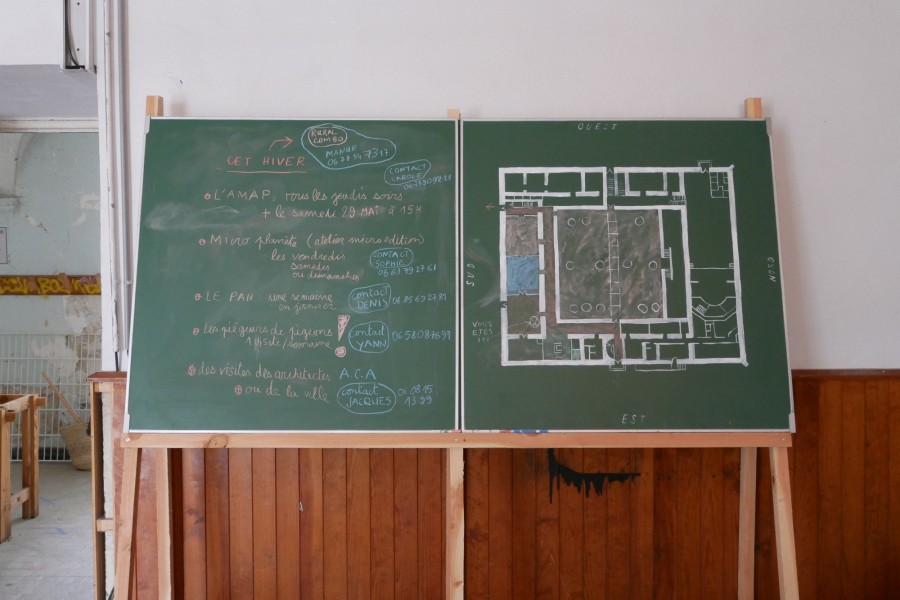 RURAL
COMBO
MANUE
06 78 54 73 17
CET HIVER
CONTACT
CAROLE
L'AMAP, tous les jeudis soirs
+ le samedi 29 MAI à 15H
MICRO planète (atelier micro édition)
les vendredis
samedis
ou dimanches
CONTACT
SOPHIE
06 61 79 27 61
LE PAH : une semaine
en janvier
contact
DENIS
06 85 69 27 81
les piégeurs de pigeons
1 visite/semaine
!
contact
YANN
06 58 08 76 99
des visites des architectes A.C.A
ou de la ville
contact
JACQUES
OUEST
SUD
NORD
VOUS
ETES
ICI
EST